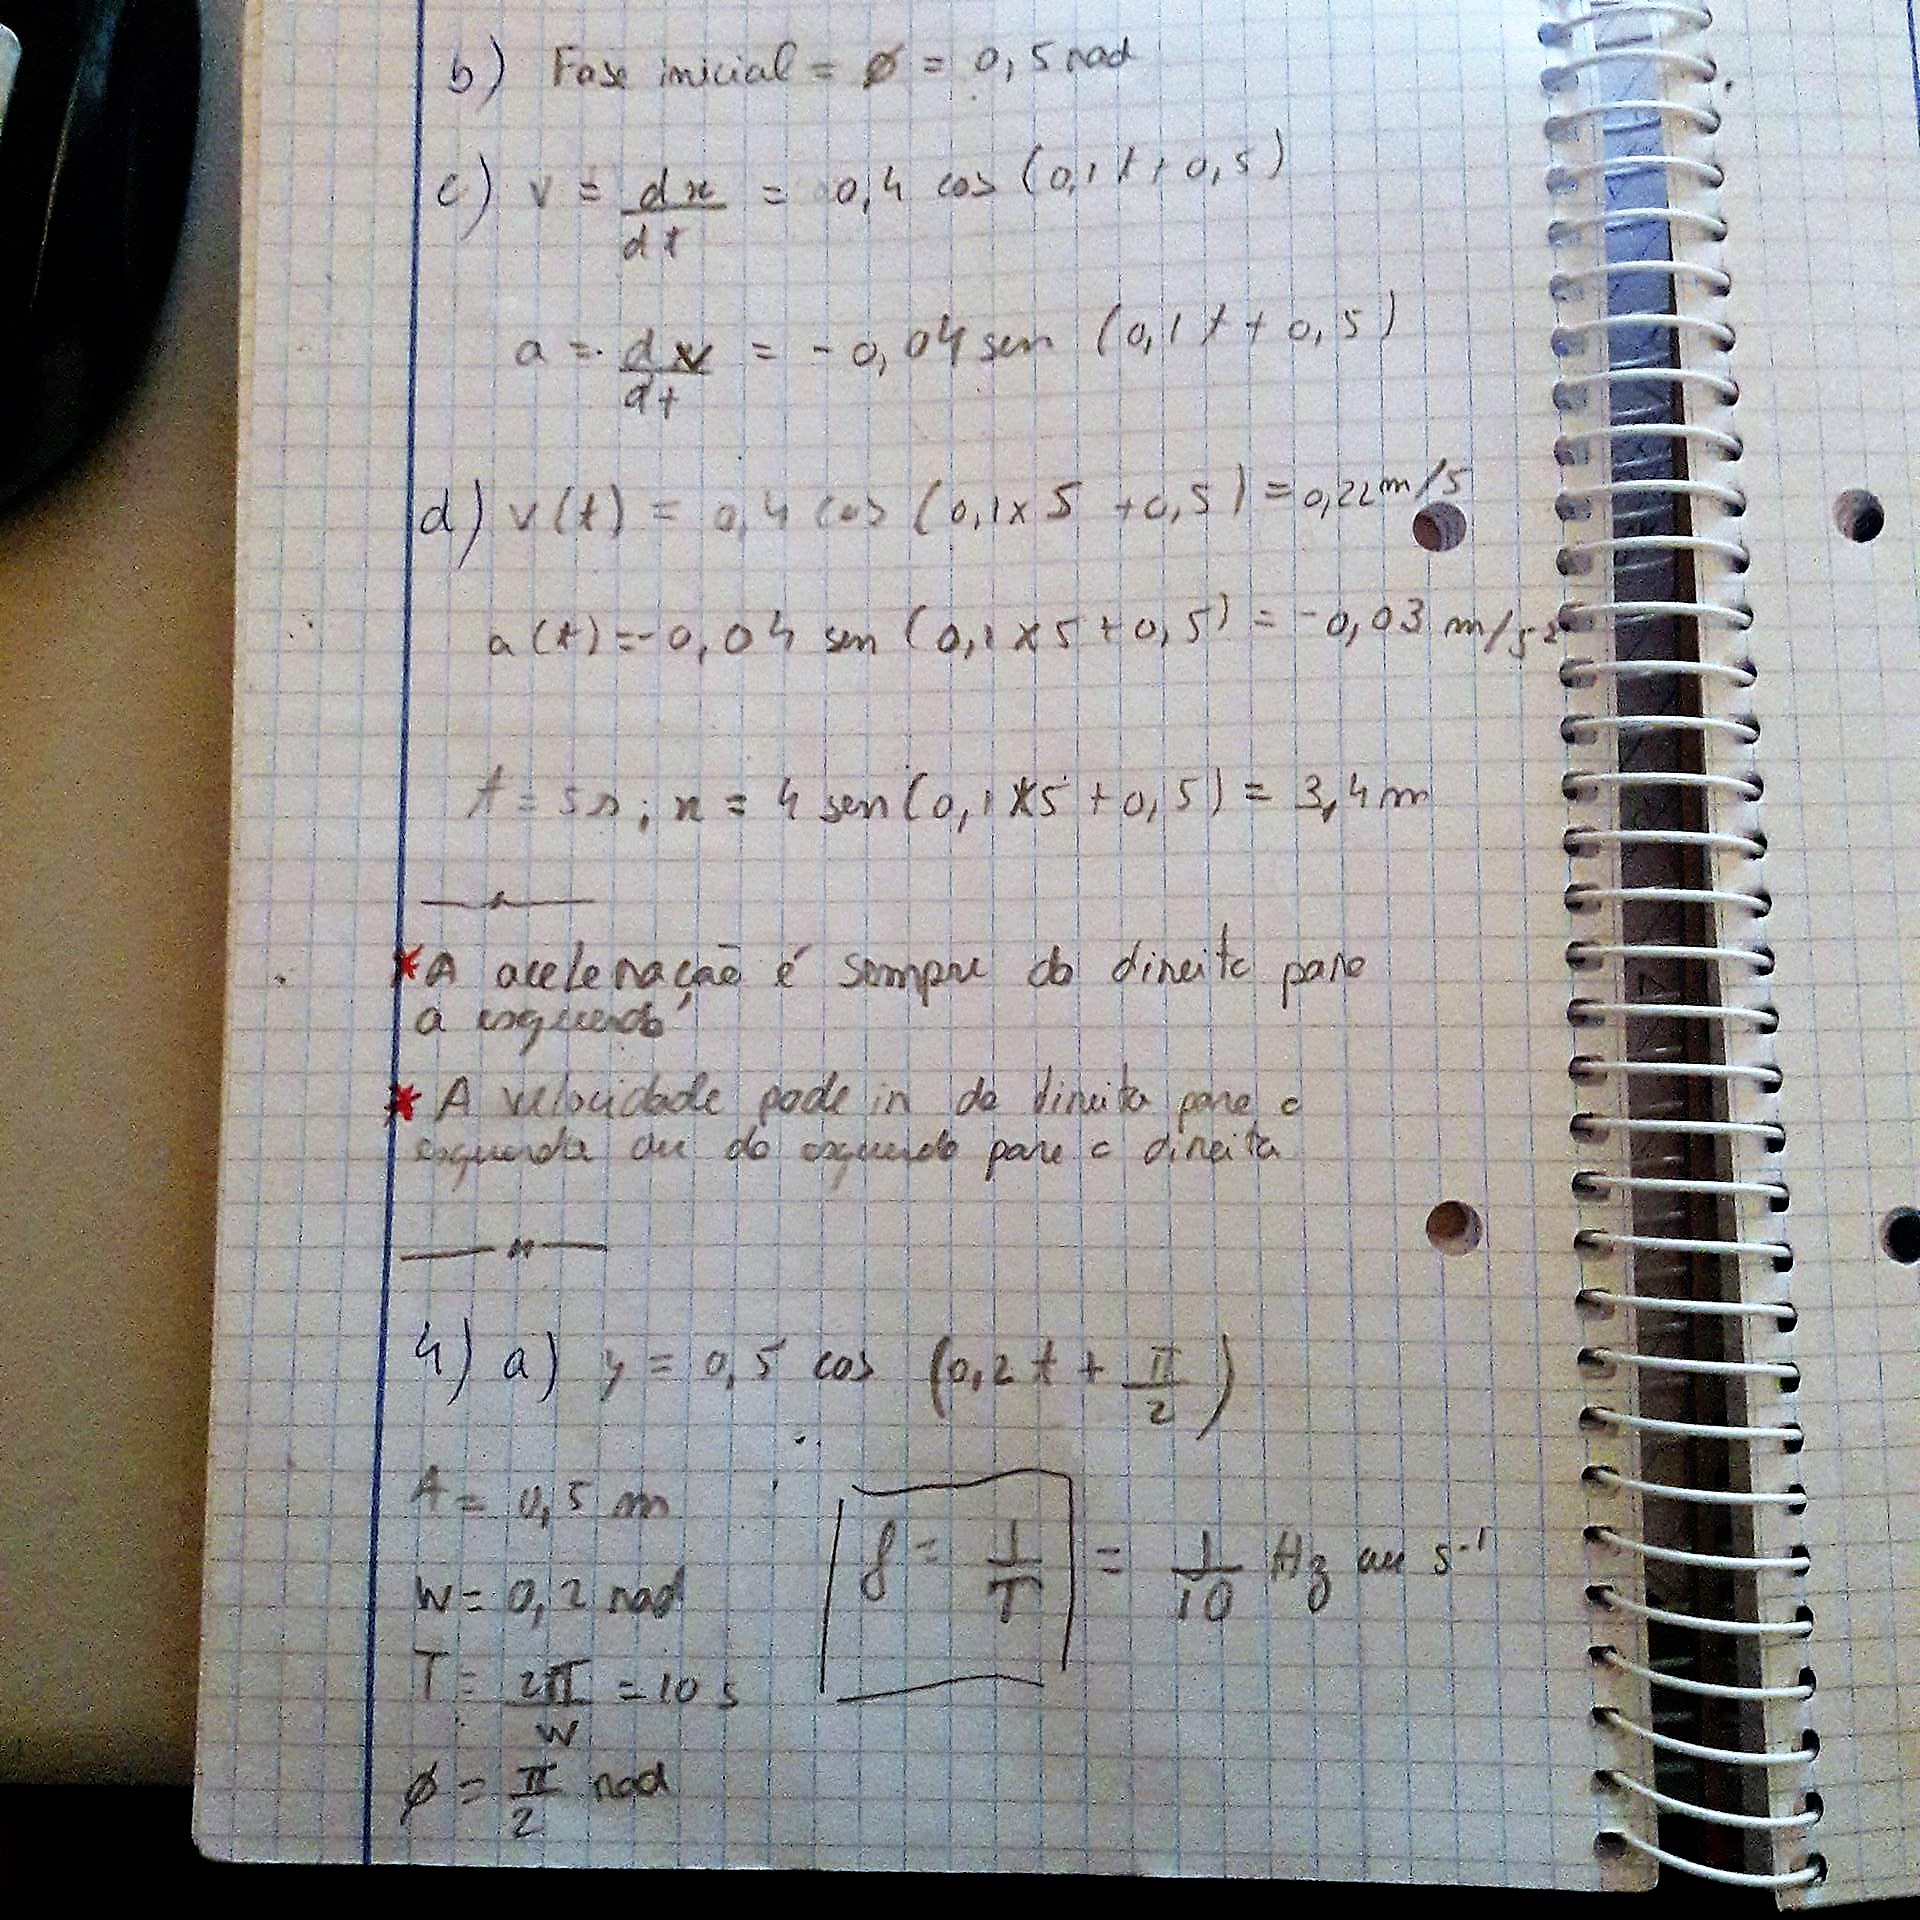 b) Fase inicial = ø = 0,5 rad
c) v = dx/dt = 0,4 cos (0,1t+0,5)
a = dv/dt = -0,04 sen (0,1t+0,5)
d) v(t) = 0,4 cos (0,1x5 +0,5) = 0,22 m/s
a(t) = -0,04 sen (0,1x5+0,5) = -0,03 m/s²
t = 5s; x = 4 sen(0,1x5+0,5) = 3,4 m
* A aceleração é sempre da direita para
a esquerda
* A velocidade pode ir da direita para a
esquerda ou da esquerda para a direita
4) a) y = 0,5 cos (0,2t + π/2)
A = 0,5 m
f = 1/T = 1/10 Hz ou s⁻¹
W = 0,2 rad
T = 2π/W = 10 s
ø = π/2 rad